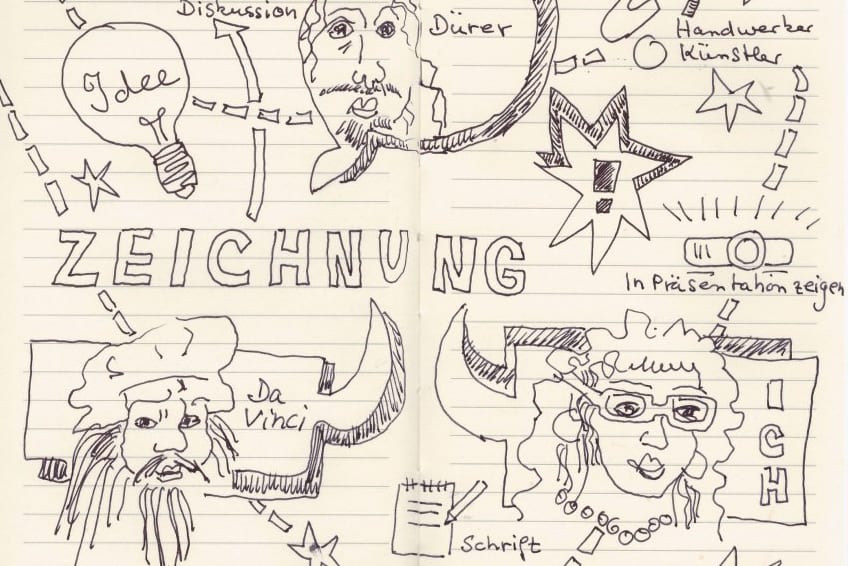 Diskussion
Dürer
Handwerker
Künstler
Idee
!
ZEICHNUNG
In Präsentation zeigen
Da
Vinci
ICH
Schrift